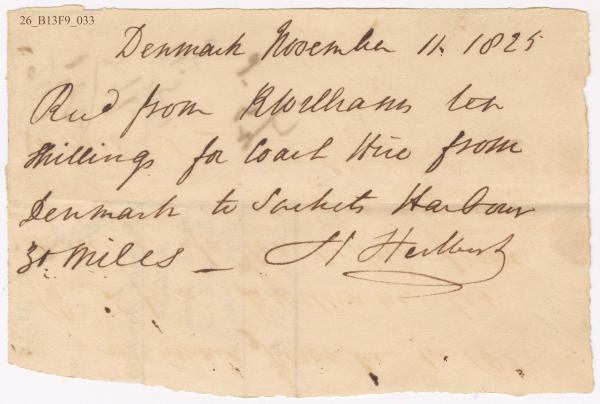 26_B13F9_033
Denmark November 11. 1825
Recd from R Williams ten
shillings for Coach Hire from
Denmark to Sackets Harbour
30 Miles — H Herbert